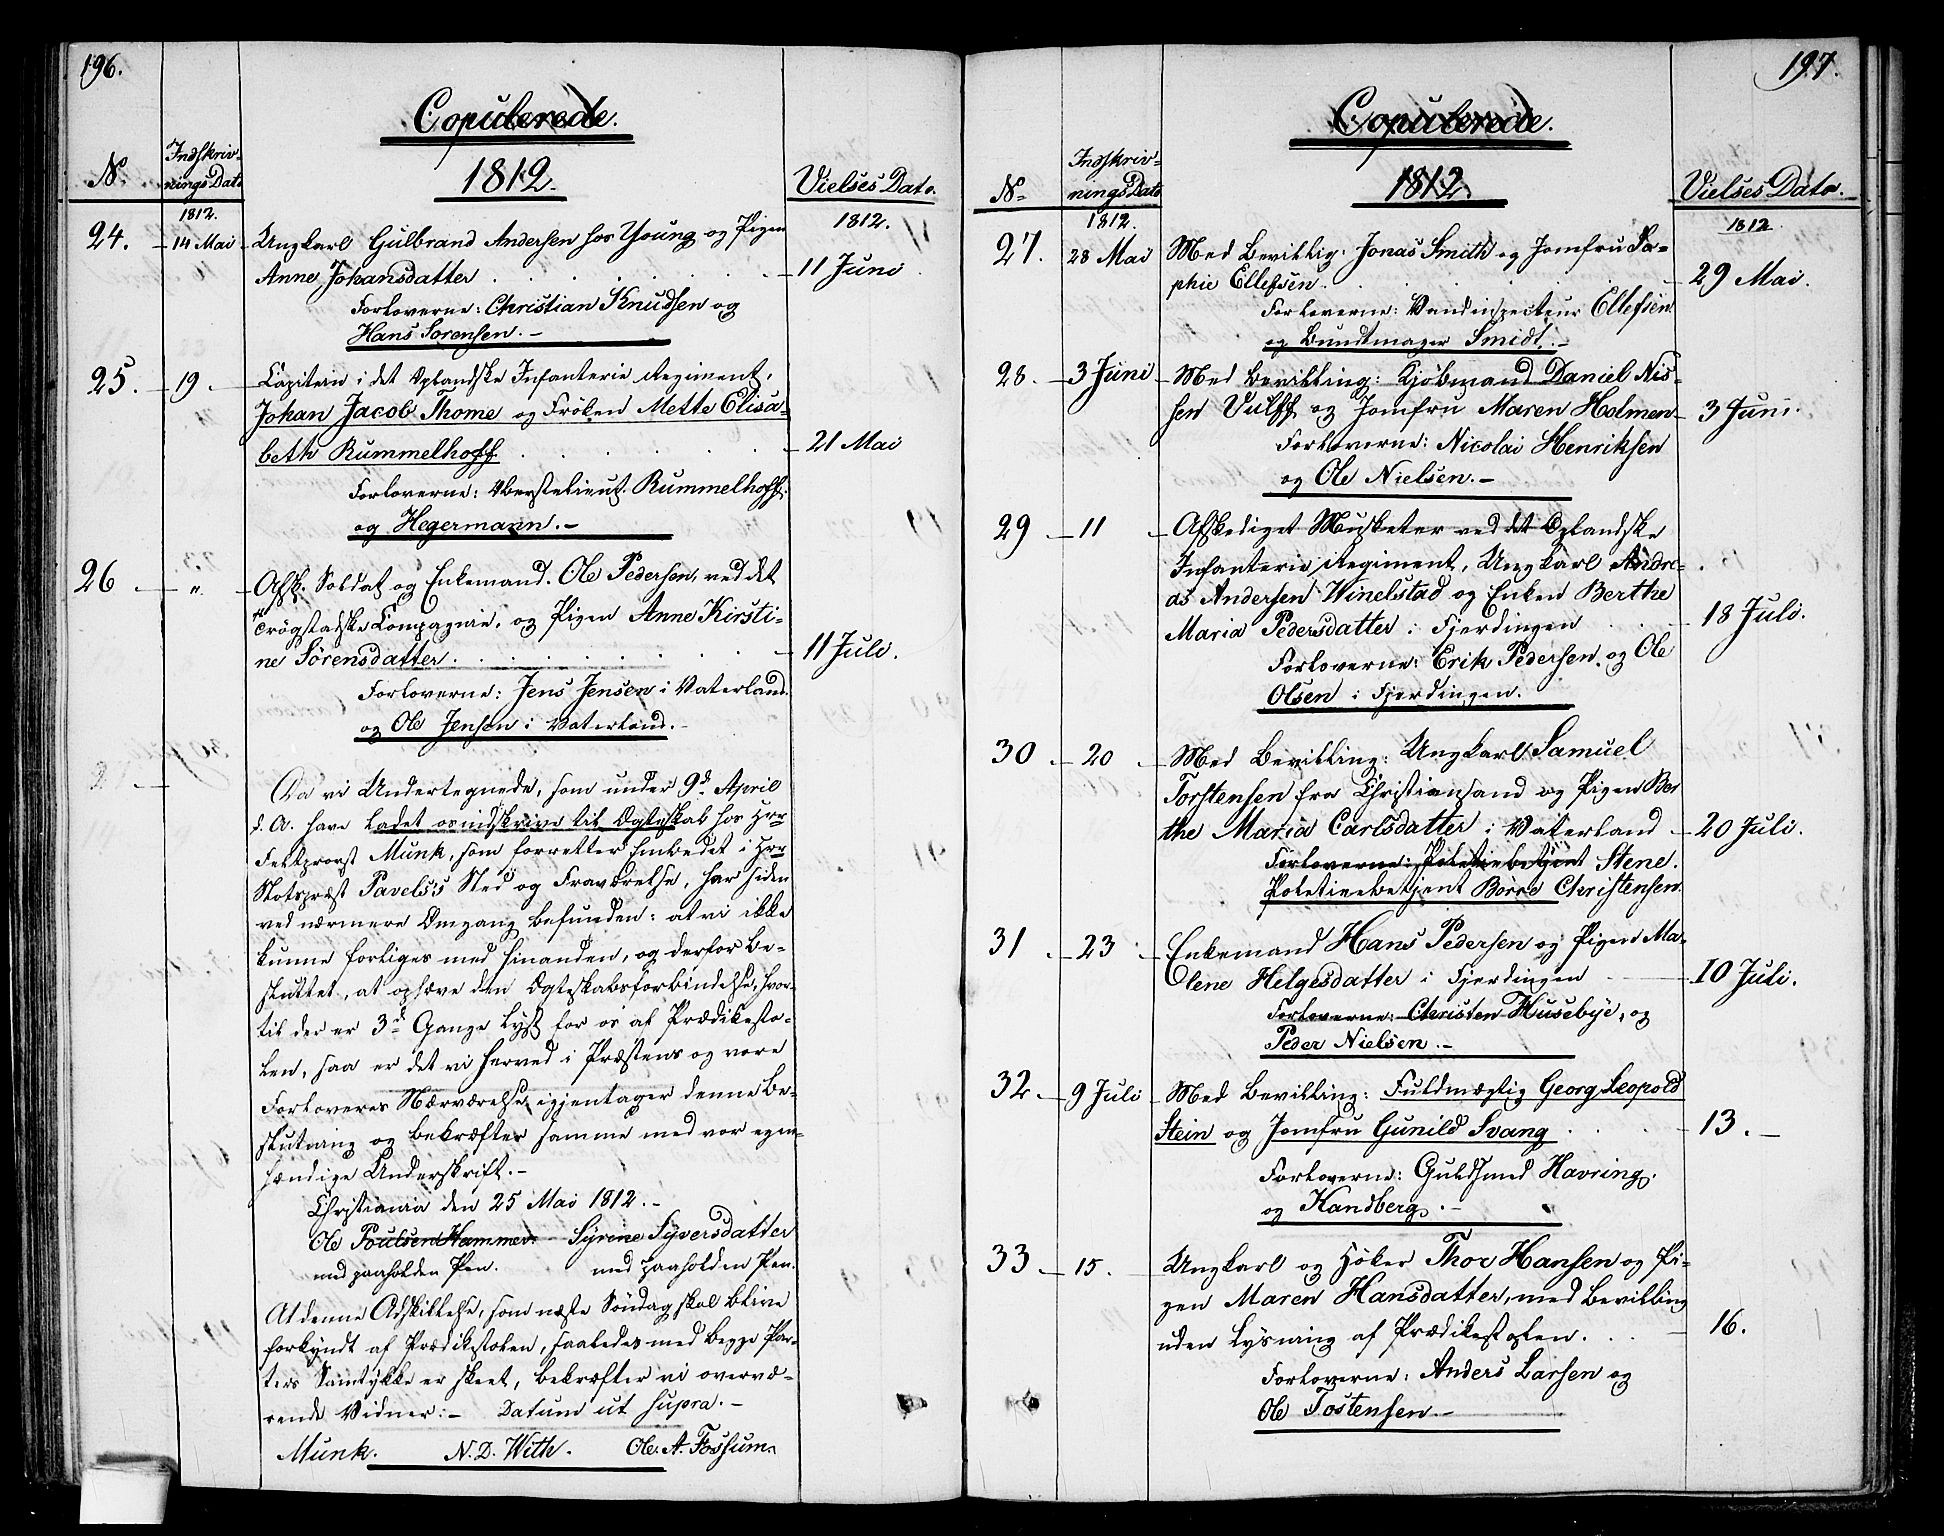 196.
Copulerede.
N.
Indskriv-
nings Dato
1812.
Vielses Dato.
1812.
1812.
24. 14 Mai Ungkarl Gulbrand Andersen hos Young og Pigen
Anne Johansdatter 11 Juni
Forloverne: Christian Knudsen og
Hans Sorensen.
25. 19. Capitain i det Oplandske Infanterie Regiment,
Johan Jacob Thome og Fröken Mette Elisa-
beth Rummelhoff. 21 Mai
Forloverne: Oberstelieut. Rummelhoff.
og Hegermann.
26 " Afsk. Soldat og Enkemand. Ole Pedersen, ved det
Trögstadske Compagnie, og Pigen Anne Kirsti-
ne Sörensdatter. 11 Juli.
Forloverne: Jens Jensen i Vaterland.
og Ole Jensen i Vaterland.
Da vi Undertegnede, som under 9d. April
d. A. have ladet os indskrive til Ægteskab hos Hrr
Feltprovst Munk, som forretter Embedet i Hrr
Slotspræst Pavels's Sted og Fraværelse, har siden
ved nærmere Omgang befunden: at vi ikke
kunne forliges med hinanden, og derfor be-
sluttet, at ophæve den Ægteskabsforbindelse, hvor-
til der er 3d Gange lyst for os af Prædikesto-
len, saa er det vi herved i Præstens og vore
Forloveres Nærværelse, igjentager denne Be-
slutning og bekræfter samme med vor egen-
hændige Underskrift.
Christiania den 25 Mai 1812.
Ole Poulsen Hammer. Syrine Syversdatter
med paaholden Pen. med paaholden Pen.
At denne Adskillelse, som næste Söndag skal blive
forkyndt af Prædikstolen, saaledes med begge Par-
ters Samtykke er skeet, bekræfter vi overvæ-
rende Vidner: Datum ut supra.
Munk. N. D. With. Ole A. Fossum.
197.
Copulerede.
N.
Indskriv-
nings Dato
1812.
Vielses Dato.
1812.
1812.
27. 28 Mai Med Bevilling: Jonas Smith og Jomfru So-
phie Ellefsen. 29 Mai.
Forloverne: Vandinspecteur Ellefsen
og Bundtmager Smidt.
28. 3 Juni Med Bevilling: Kjöbmand Daniel Nis-
sen Vulff og Jomfru Maren Holmen 3 Juni.
Forloverne: Nicolai Henriksen
og Ole Nielsen.
29 11 Afskediget Musketer ved det Oplandske
Infanterie Regiment, Ungkarl Andre-
as Andersen Winelstad og Enken Berthe
Maria Pedersdatter i Fjerdingen 18 Juli.
Forloverne: Erik Pedersen og Ole
Olsen i Fjerdingen.
30 20 Med Bevilling: Ungkarl Samuel
Torstensen fra Christiansand og Pigen Ber
the Maria Carlsdatter i Vaterland 20 Juli.
Forloverne: Politiebetjent Stene.
Politiebetjent Borre Christensen
31 23 Enkemand Hans Pedersen og Pigen Ma-
lene Helgesdatter i Fjerdingen 10 Juli.
Forloverne: Christen Husebye, og
Peder Nielsen.
32 9 Juli Med Bevilling: Fuldmægtig Georg Leopold
Stein og Jomfru Gunild Svang 13.
Forloverne: Guldsmed Havring.
og Kandberg.
33 15. Ungkarl og Höker Thor Hansen og Pi-
gen Maren Hansdatter, med Bevilling
uden Lysning af Prædikestolen. 16.
Forloverne: Anders Larsen og
Ole Tostensen.